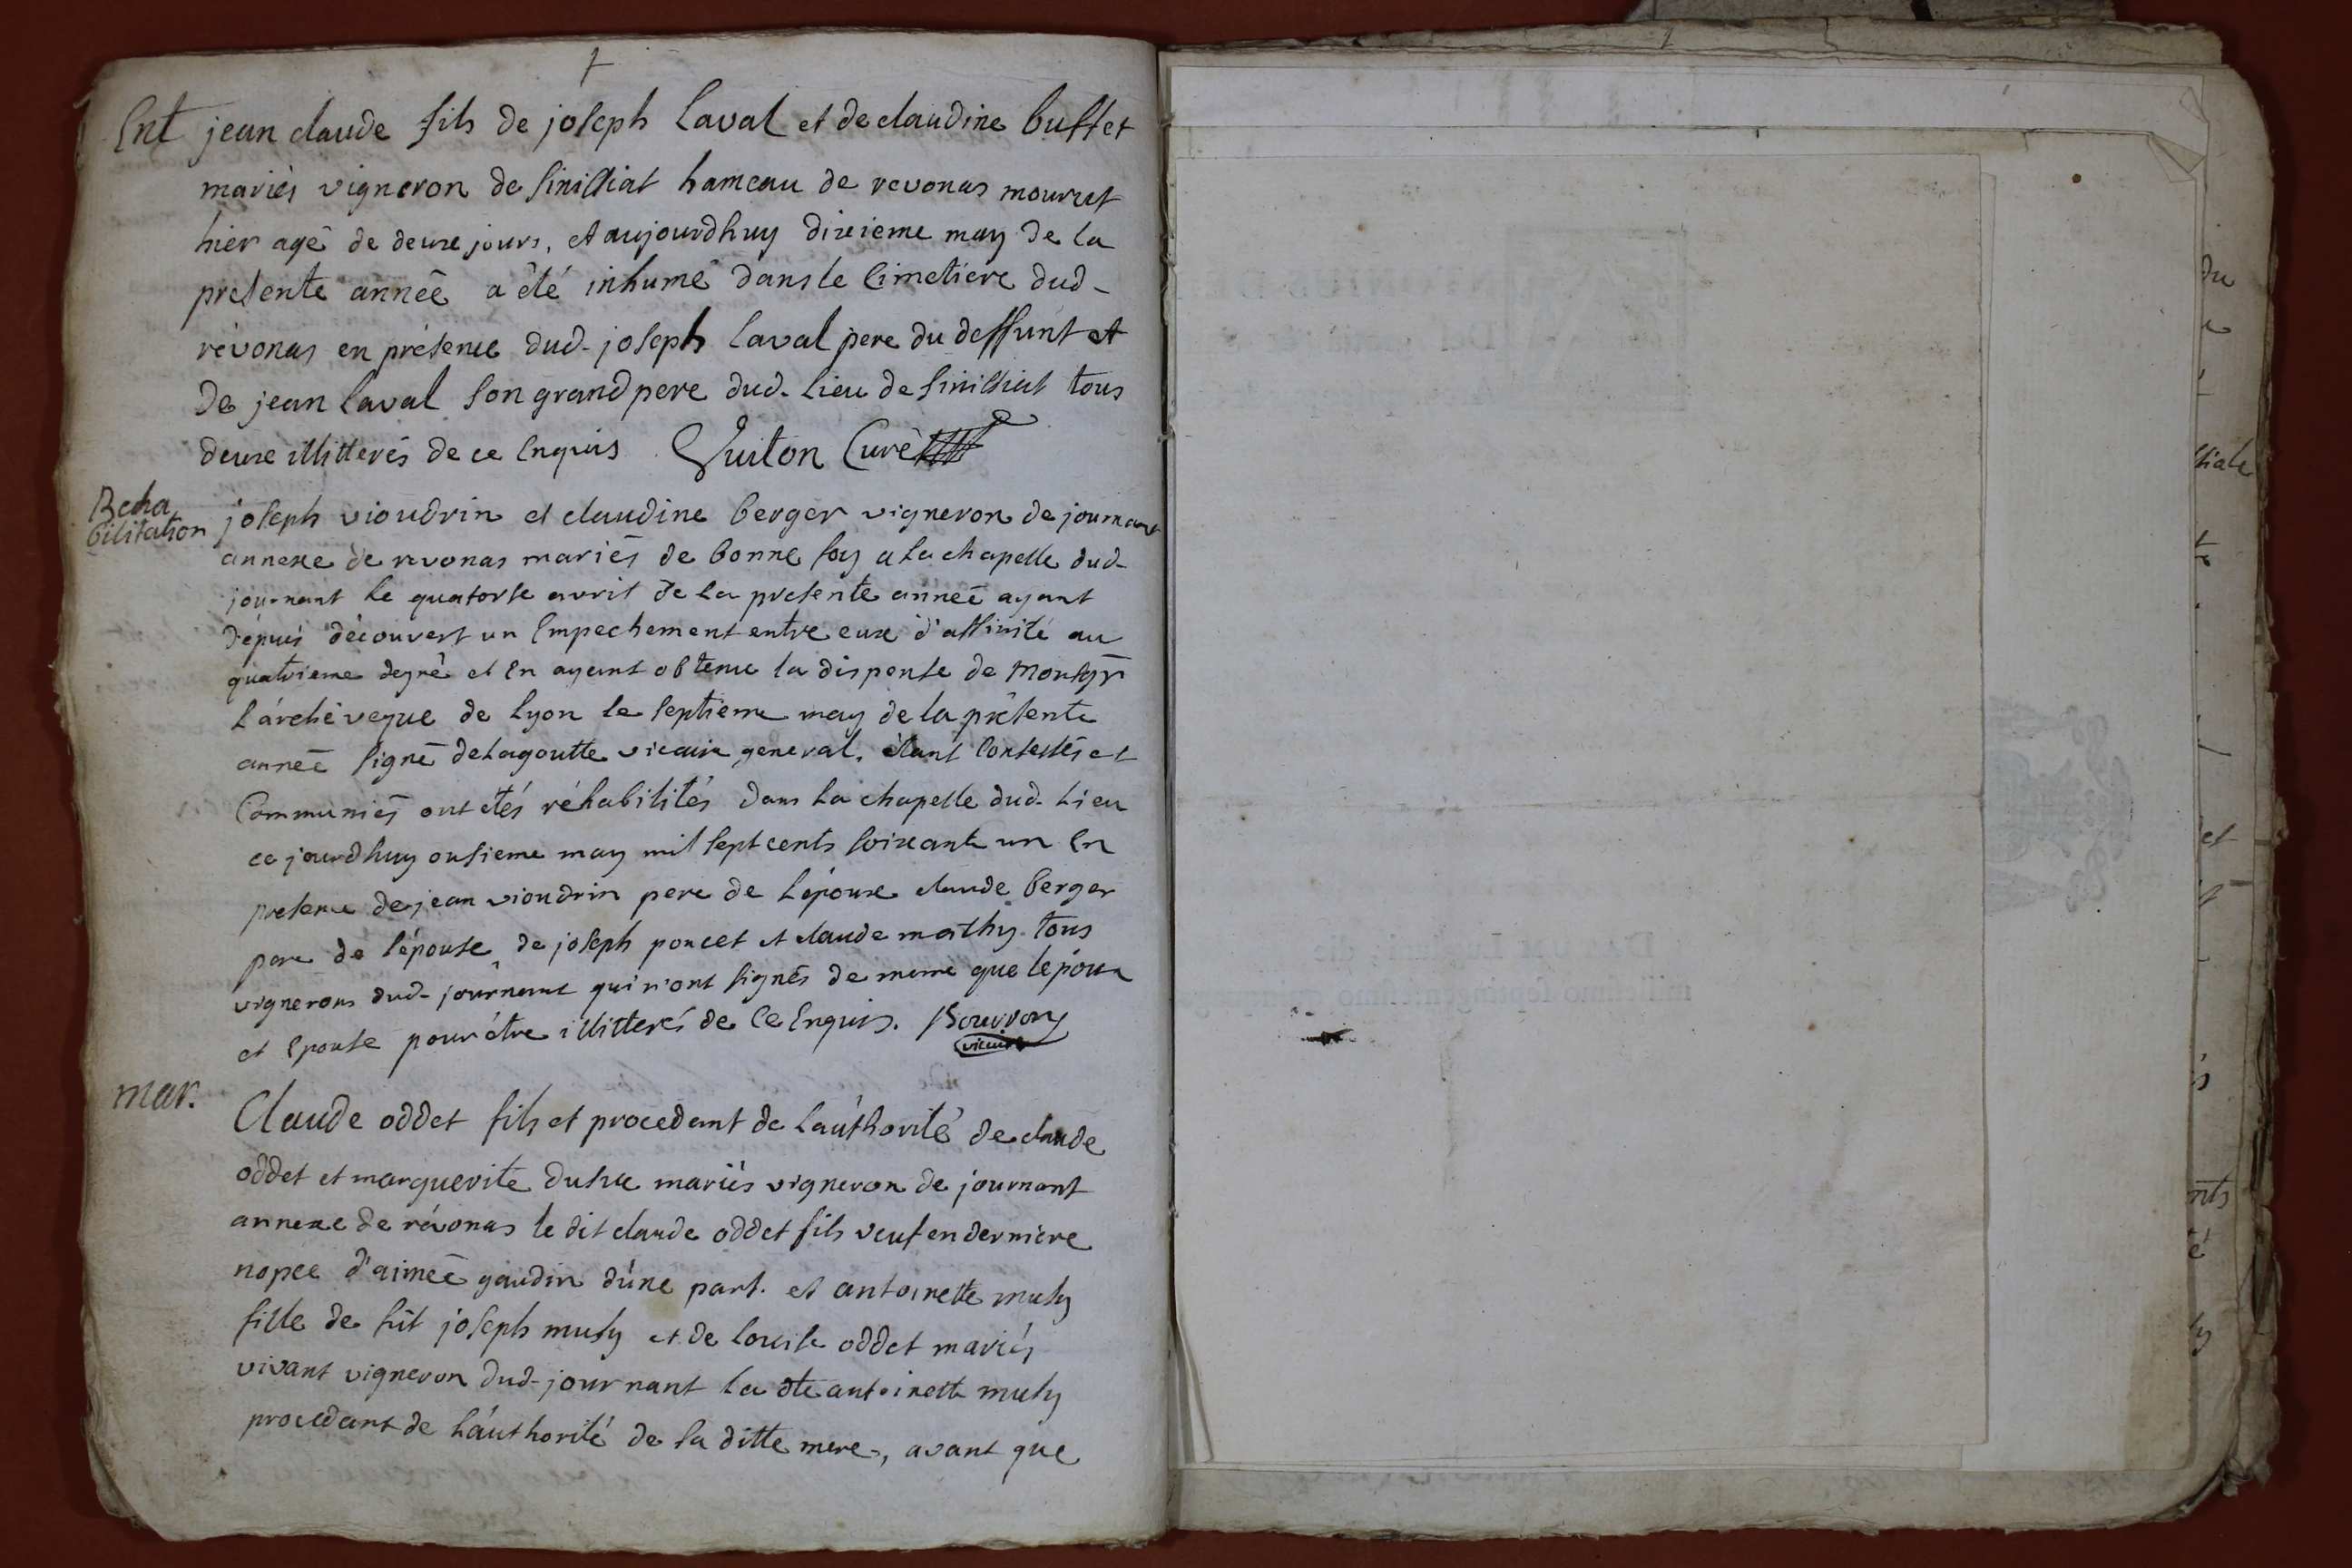 Ent jean claude fils de joseph laval et de claudine buffet
mariés vigneron de sinissiat hameau de revonas mourut
hier agé de deux jours, et aujourdhuy dixieme may de la
presente année a été inhumé dans le cimetiere dud-
révonas en présence dud- joseph laval pere du deffunt et
de jean laval son grand pere dud- lieu de sinissiat tous
deux illitterés de ce enquis Guiton Curé
Reha
bilitation
joseph vioudrin et claudine berger vigneron de journant
annexe de revonas mariés de bonne foy a la chapelle dud-
journant le quatorse avril de la presente année ayant
dépuis découvert un empechement entre eux d'affinité au
quatrieme degré et en ayant obtenu la dispense de monsgr
l'archéveque de lyon le septieme may de la présente
année signé delagoutte vicaire general, étant confessés et
communiés ont étés réhabilités dans la chapelle dud- lieu
ce jourdhuy onsieme may mil sept cents soixante un en
presence de jean vioudrin pere de l'époux claude berger
pere de l'épouse de joseph poncet et claude mathy tous
vignerons dud- journant qui n'ont signés de meme que l'époux
et epouse pour être illitterés de ce enquis. Bouvron
vicaire
mar.
Claude oddet fils et procedant de l'authorité de claude
oddet et marguerite dufre mariés vigneron de journant
annexe de révonas le dit claude oddet fils veuf en derniere
nopce d'aimée gaudin d'une part. et antoinette musy
fille de fût joseph musy et de louise oddet mariés
vivant vigneron dud- journant la dte antoinette musy
procedant de l'authorité de sa ditte mere, avant que
du
et
nts
é